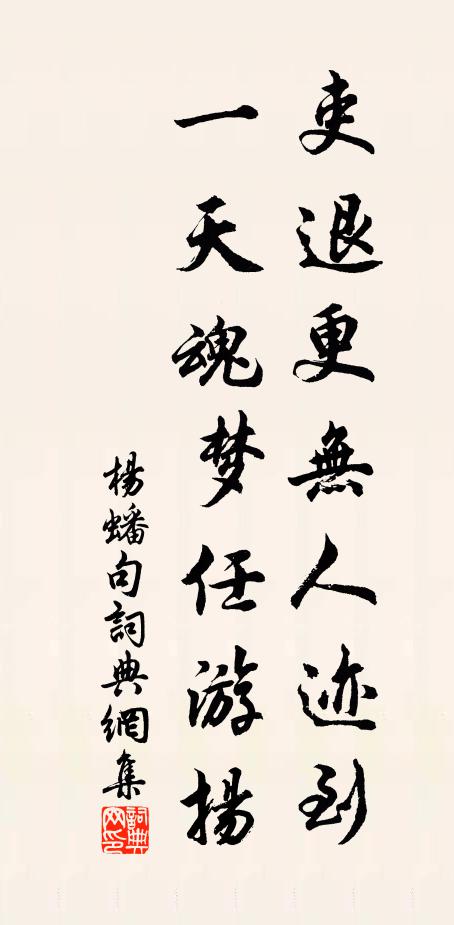 吏退更無人迹到
一天魂梦任游揚
楊蟠句詞典網集
詞典網印